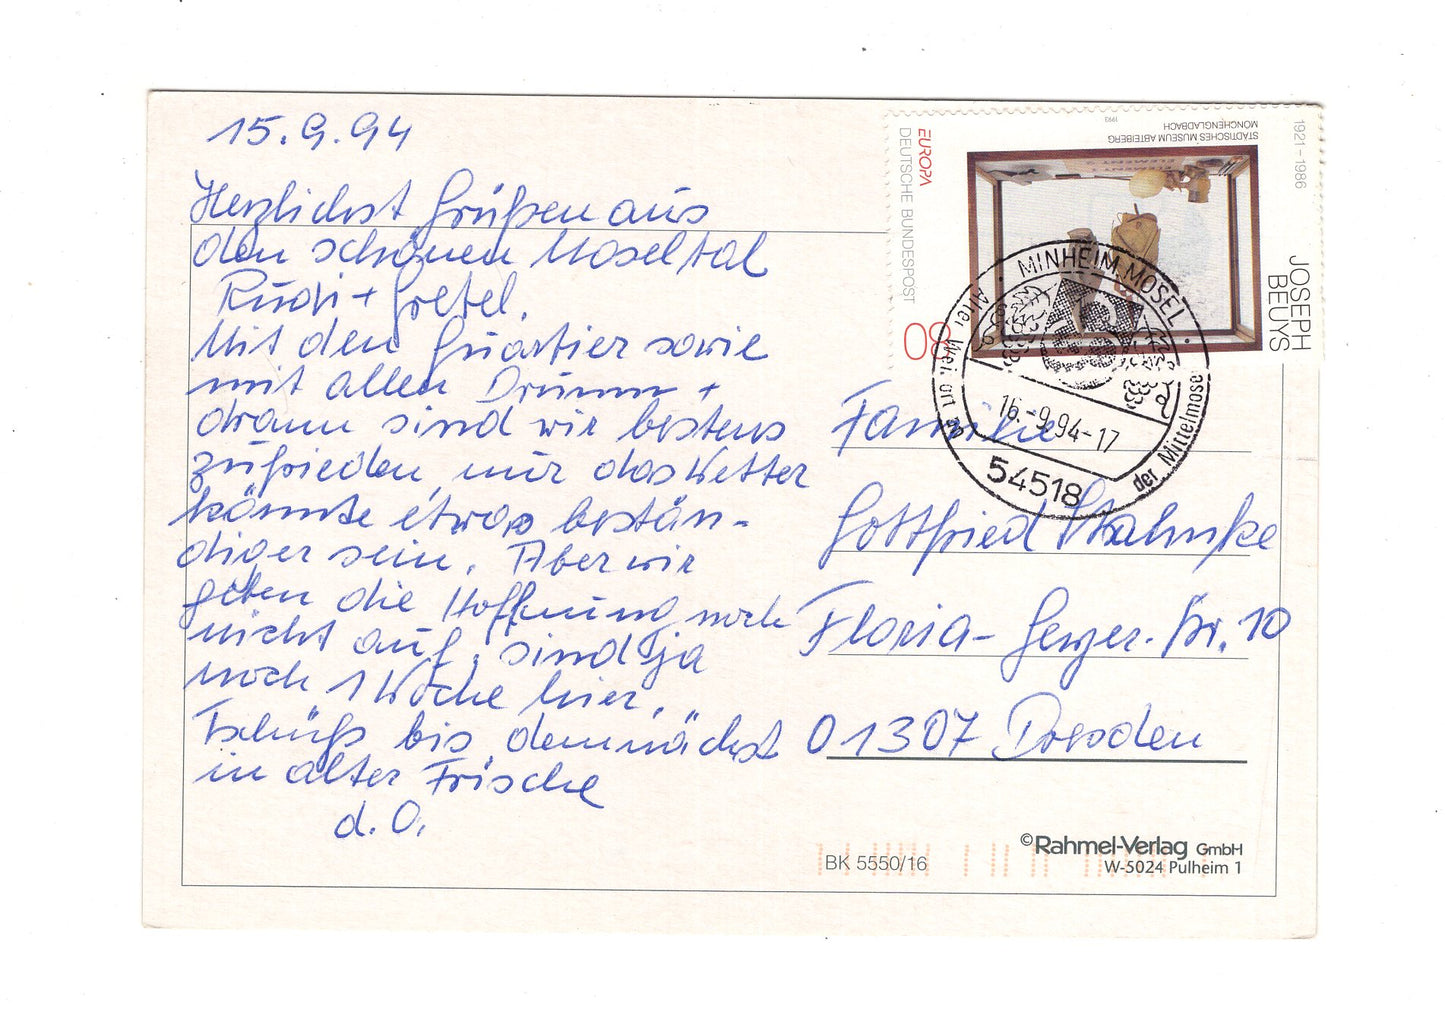 15.9.94
Herzlichst Grüßen aus
den schönen Moseltal
Rudi + Gretel.
Mit den Quartier sowie
mit allen Drumm +
dramm sind wir bestens
zufrieden, nur das Wetter
könnte etwas bestän-
diger sein. Aber wir
geben die Hoffnung noch
nicht auf, sind ja
noch 1 Woche hier.
Tschüß bis demnächst
in alter Frische
d. O.
1921-1986
JOSEPH
BEUYS
STÄDTISCHES MUSEUM ABTEIBERG
MÖNCHENGLADBACH
1993
EUROPA
DEUTSCHE BUNDESPOST
80
MINHEIM, MOSEL
Alter Wei. ort an
der Mittelmosel
16.-9.94-17
54518
Familie
Gottfried
Floria-Geyer-Str. 10
01307 Dresden
BK 5550/16
©Rahmel-Verlag GmbH
W-5024 Pulheim 1